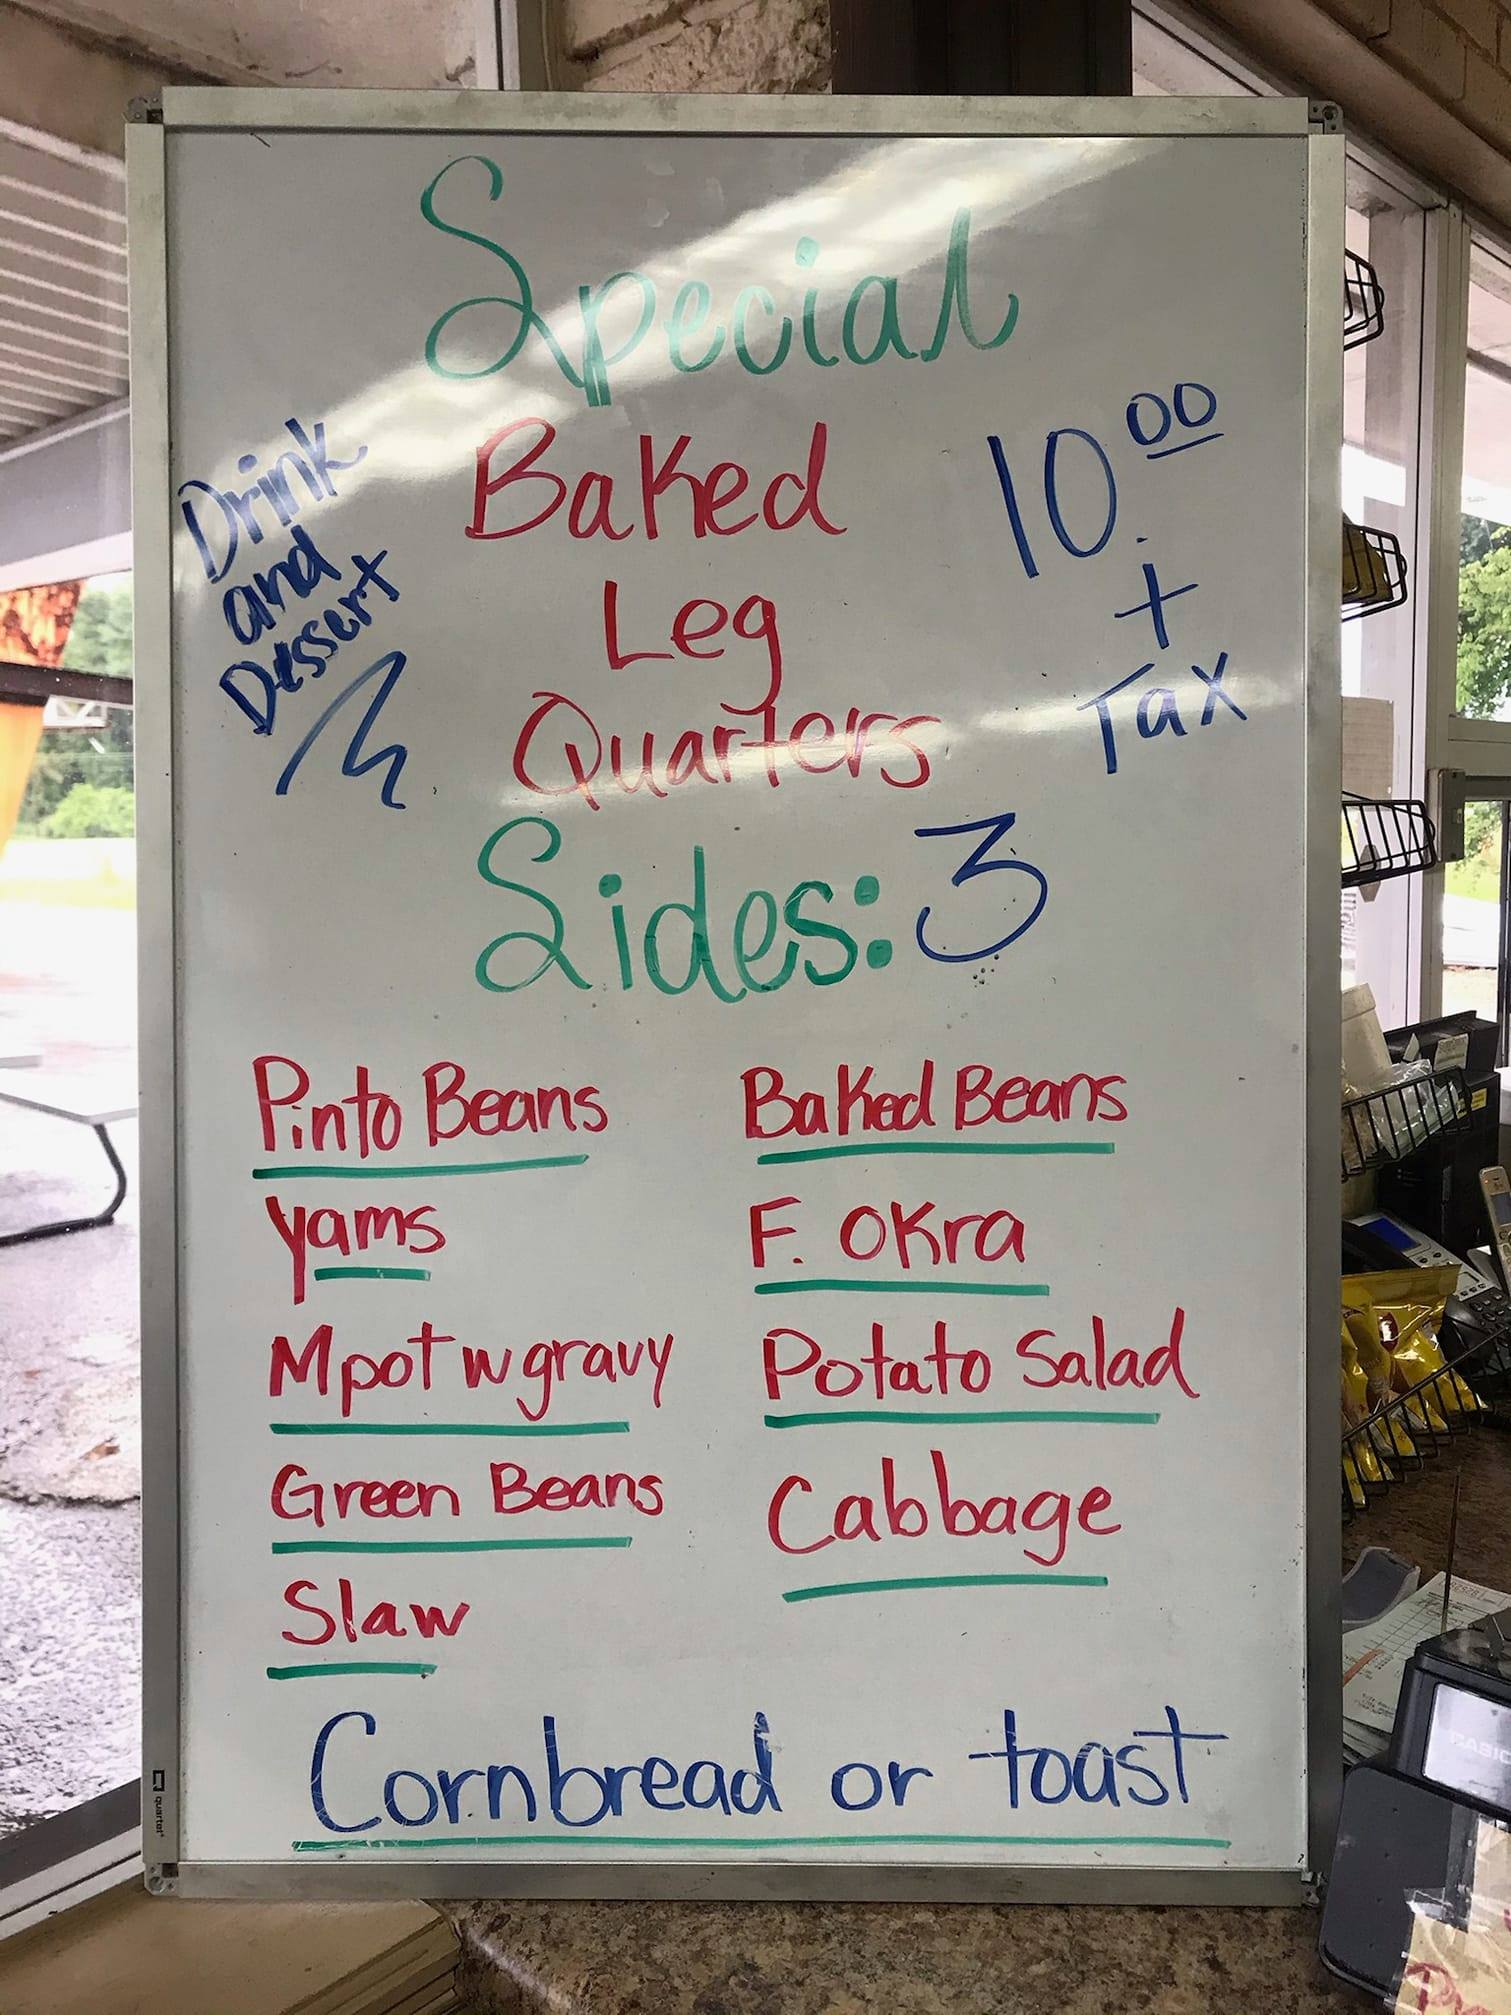 Special
Drink
and
Dessert
Baked
Leg
Quarters
10.00
+
Tax
Sides: 3
Pinto Beans
Yams
Mpot w gravy
Green Beans
Slaw
Baked Beans
F. Okra
Potato Salad
Cabbage
Cornbread or toast
quartet